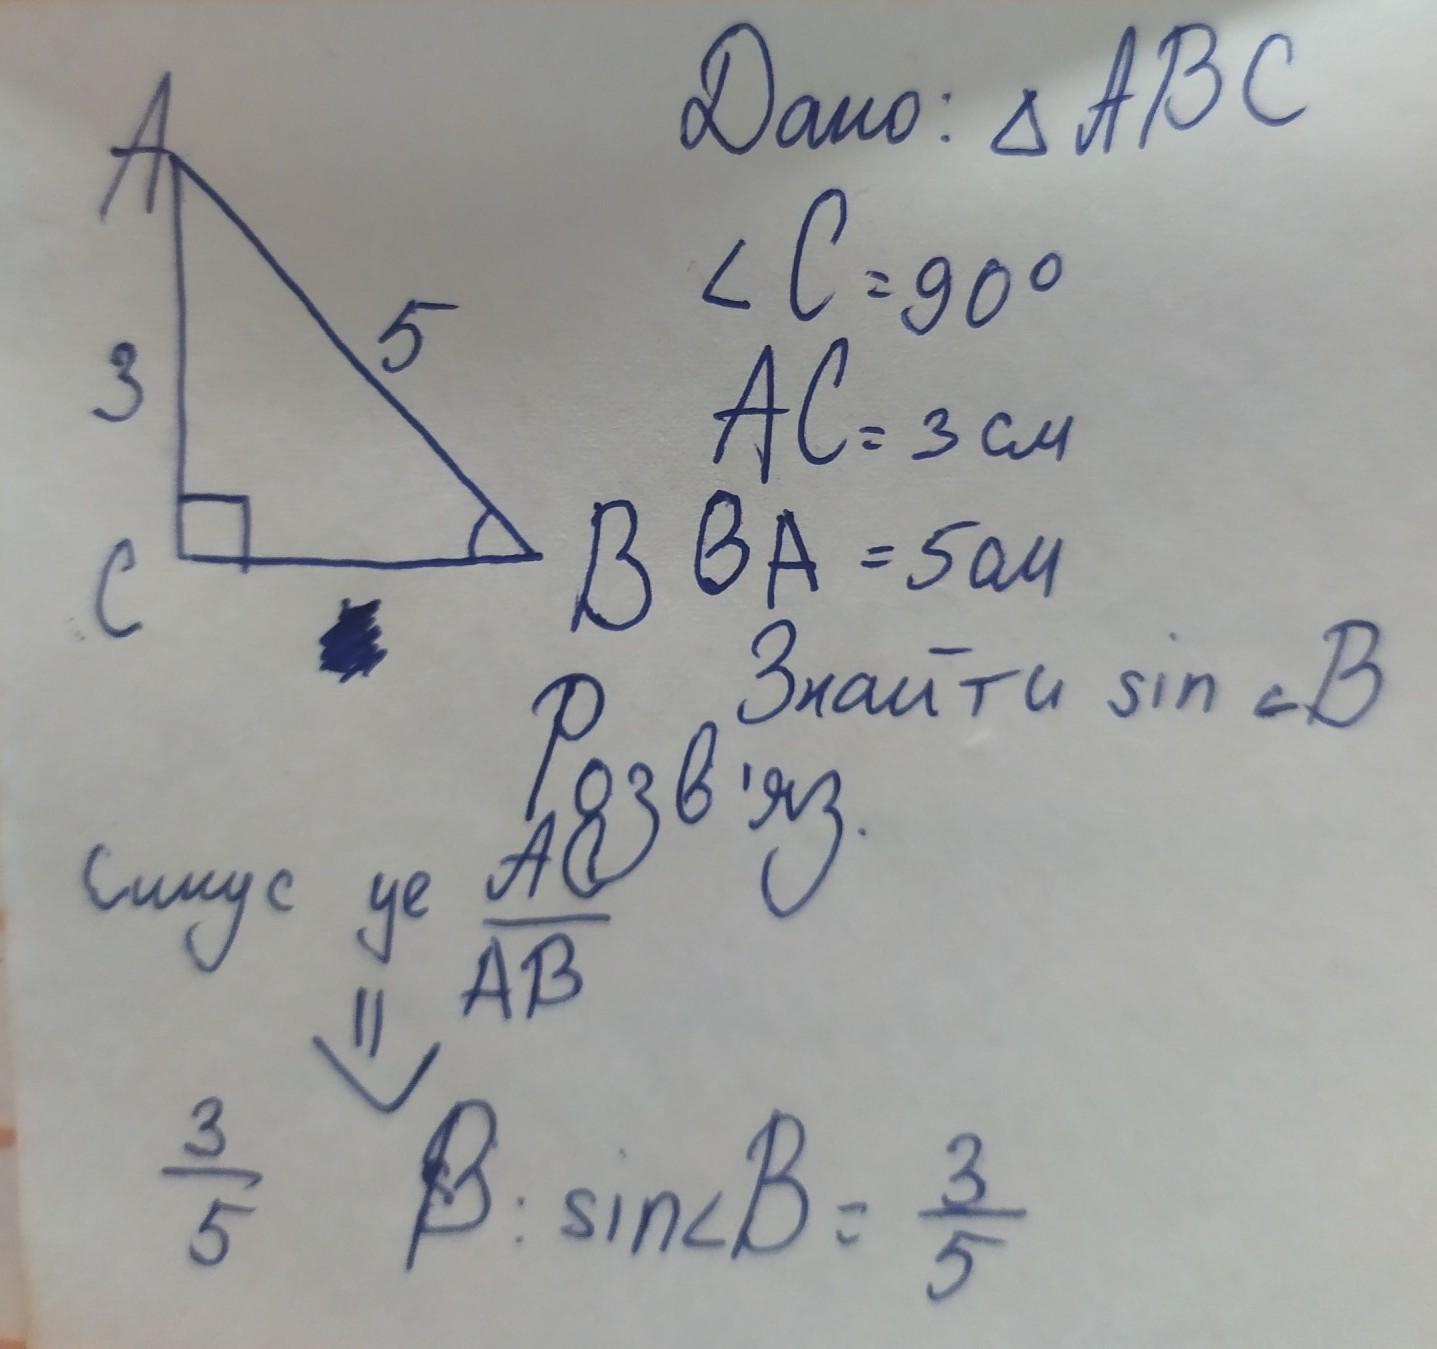 A
3
5
C
B
Дано: △ ABC
< C = 90°
AC = 3 см
BA = 5 см
Знайти sin <B
Розв'яз.
Синус це AC/AB
⇓
3/5
В: sin<B = 3/5